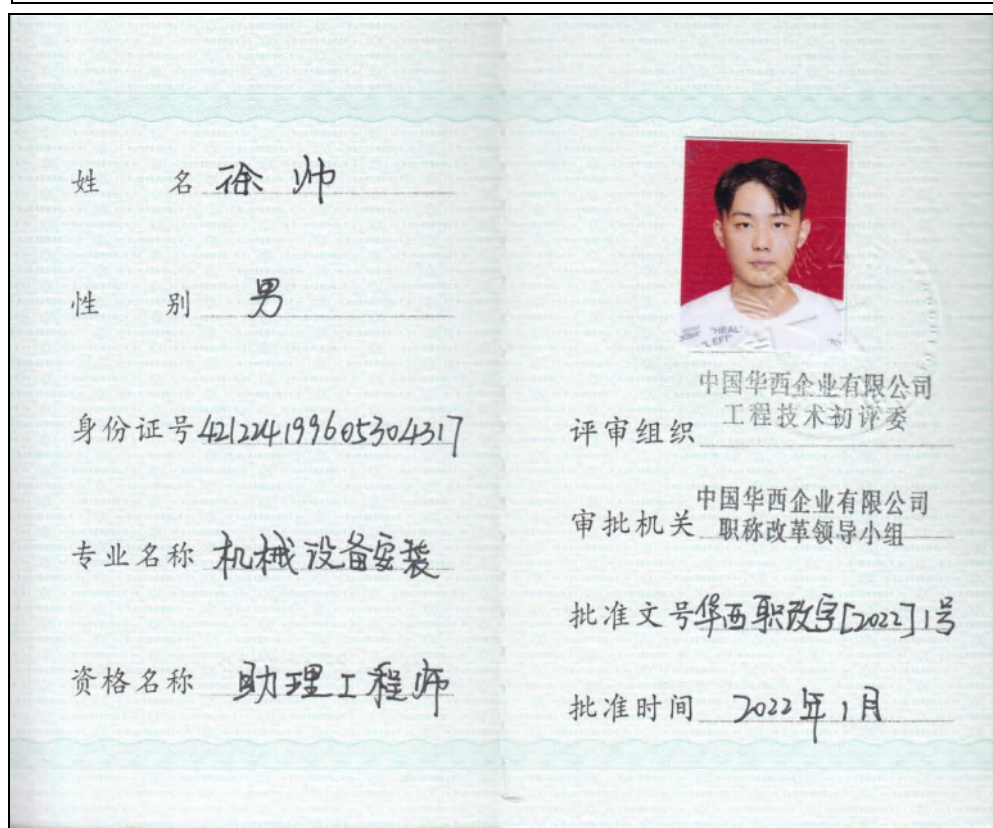 姓 名 徐帅
性 别 男
身份证号 421224199605304317
专业名称 机械设备安装
资格名称 助理工程师
"HEAL"
"LEFT"
中国华西企业有限公司
评审组织 工程技术初评委
中国华西企业有限公司
审批机关 职称改革领导小组
批准文号 华西职改字[2022]1号
批准时间 2022年1月